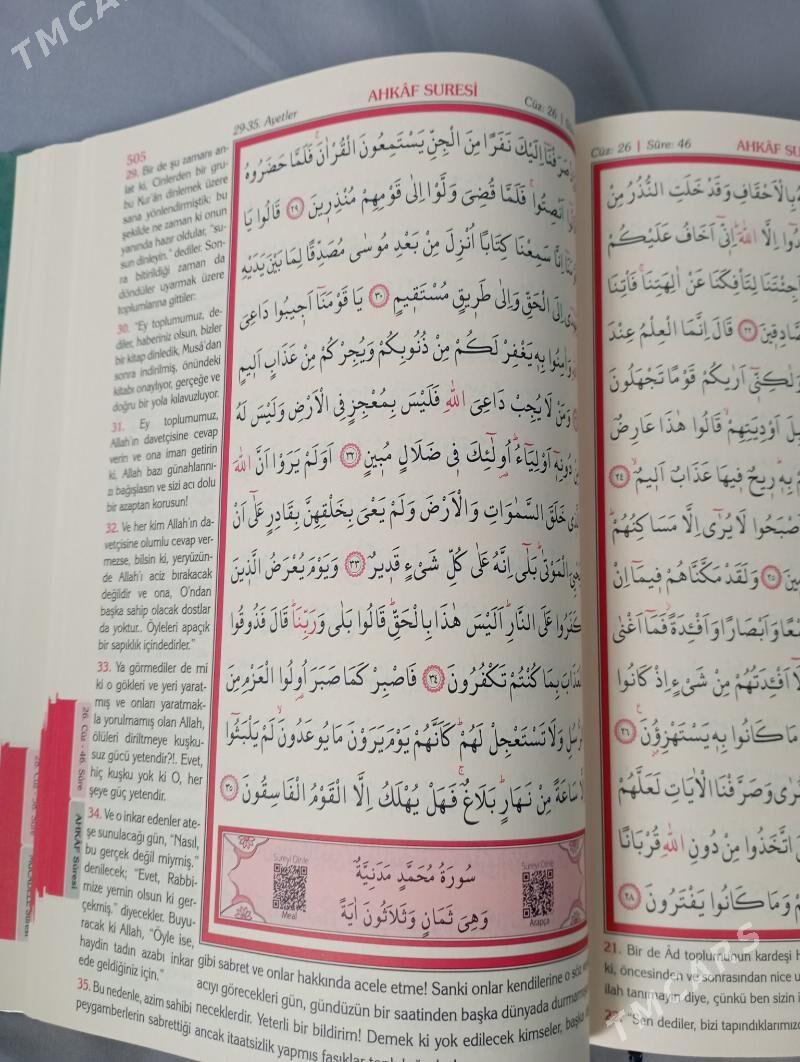 TMCARS
29-35. Ayetler
AHKÂF SURESİ
Cüz: 26 |
505
29. Bir de şu zamanı an-
lat ki, Cinlerden bir gru-
bu Kur'ân dinlemek üzere
sana yönlendirmiştik; bu
şekilde ne zaman ki onun
yanında hazır oldular, "su-
sun dinleyin." dediler. Son-
ra bitirildiği zaman da
döndüler uyarmak üzere
toplumlarına gittiler:
30. "Ey toplumumuz, de-
diler, haberiniz olsun, bizler
bir kitap dinledik, Musâ'dan
sonra indirilmiş, önündeki
kitabı onaylıyor, gerçeğe ve
doğru bir yola kılavuzluyor.
31. Ey toplumumuz,
Allah'ın davetçisine cevap
verin ve ona iman getirin
ki, Allah bazı günahlarını-
zı bağışlasın ve sizi acı dolu
bir azaptan korusun!
32. Ve her kim Allah'ın da-
vetçisine olumlu cevap ver-
mezse, bilsin ki, yeryüzün-
de Allah'ı aciz bırakacak
değildir ve ona, O'ndan
başka sahip olacak dostlar
da yoktur.. Öyleleri apaçık
bir sapıklık içindedirler."
33. Ya görmediler de mi
ki o gökleri ve yeri yarat-
mış ve onları yaratmak-
la yorulmamış olan Allah,
ölüleri diriltmeye kuşku-
suz gücü yetendir?!. Evet,
hiç kuşku yok ki O, her
şeye güç yetendir.
34. Ve o inkar edenler ate-
şe sunulacağı gün, "Nasıl,
bu gerçek değil miymiş."
denilecek; "Evet, Rabbi-
mize yemin olsun ki ger-
çekmiş." diyecekler. Buyu-
racak ki Allah, "Öyle ise,
haydin tadın azabı inkar
ede geldiğiniz için."
35. Bu nedenle, azim sahibi
peygamberlerin sabrettiği
gibi sabret ve onlar hakkında acele etme! Sanki onlar kendilerine o söz
acıyı görecekleri gün, gündüzün bir saatinden başka dünyada durmamış
neceklerdir. Yeterli bir bildirim! Demek ki yok edilecek kimseler, başka
ancak itaatsizlik yapmış fasıklar
صَرَفْنَٓا اِلَيْكَ نَفَرًا مِنَ الْجِنِّ يَسْتَمِعُونَ الْقُرْاٰنَۚ فَلَمَّا حَضَرُوهُ
اَنْصِتُواۚ فَلَمَّا قُضِيَ وَلَّوْا اِلٰى قَوْمِهِمْ مُنْذِرِينَ ٢٩ قَالُوا يَا
اِنَّا سَمِعْنَا كِتَابًا اُنْزِلَ مِنْ بَعْدِ مُوسٰى مُصَدِّقًا لِمَا بَيْنَ يَدَيْهِ
اِلَى الْحَقِّ وَاِلٰى طَرِيقٍ مُسْتَقِيمٍ ٣٠ يَا قَوْمَنَٓا اَجِيبُوا دَاعِيَ
وَاٰمِنُوا بِهِ يَغْفِرْ لَكُمْ مِنْ ذُنُوبِكُمْ وَيُجِرْكُمْ مِنْ عَذَابٍ اَلِيمٍ
وَمَنْ لَا يُجِبْ دَاعِيَ اللّٰهِ فَلَيْسَ بِمُعْجِزٍ فِي الْاَرْضِ وَلَيْسَ لَهُ
دُونِهٖٓ اَوْلِيَٓاءُۜ اُو۬لٰٓئِكَ فِي ضَلَالٍ مُبِينٍ ٣٢ اَوَلَمْ يَرَوْا اَنَّ اللّٰهَ
خَلَقَ السَّمٰوَاتِ وَالْاَرْضَ وَلَمْ يَعْيَ بِخَلْقِهِنَّ بِقَادِرٍ عَلٰٓى اَنْ
الْمَوْتٰىۜ بَلٰٓى اِنَّهُ عَلٰى كُلِّ شَيْءٍ قَدِيرٌ ٣٣ وَيَوْمَ يُعْرَضُ الَّذِينَ
كَفَرُوا عَلَى النَّارِۜ اَلَيْسَ هٰذَا بِالْحَقِّۜ قَالُوا بَلٰى وَرَبِّنَاۜ قَالَ فَذُوقُوا
بِمَا كُنْتُمْ تَكْفُرُونَ ٣٤ فَاصْبِرْ كَمَا صَبَرَ اُو۬لُوا الْعَزْمِ مِنَ
وَلَا تَسْتَعْجِلْ لَهُمْۜ كَاَنَّهُمْ يَوْمَ يَرَوْنَ مَا يُوعَدُونَۙ لَمْ يَلْبَثُٓوا
سَاعَةً مِنْ نَهَارٍۜ بَلَاغٌۚ فَهَلْ يُهْلَكُ اِلَّا الْقَوْمُ الْفَاسِقُونَ ٣٥
Sureyi Dinle
Meal
سُورَةُ مُحَمَّدٍ مَدَنِيَّةٌ
وَهِيَ ثَمَانٍ وَثَلَاثُونَ اٰيَةً
Sureyi Dinle
Arapça
26. Cüz - 46. Sûre
AHKÂF Sûresi
Cüz: 26 | Sûre: 46
AHKÂF SU
بِالْاَحْقَافِ وَقَدْ خَلَتِ النُّذُرُ مِنْ
اِلَّا اللّٰهَۜ اِنّٓي اَخَافُ عَلَيْكُمْ
اَجِئْتَنَا لِتَأْفِكَنَا عَنْ اٰلِهَتِنَاۚ فَأْتِنَا
٢٢ قَالَ اِنَّمَا الْعِلْمُ عِنْدَ
وَلٰكِنّٓي اَرٰيكُمْ قَوْمًا تَجْهَلُونَ
اَوْدِيَتِهِمْۙ قَالُوا هٰذَا عَارِضٌ
بِهٖۜ رِيحٌ فِيهَا عَذَابٌ اَلِيمٌۙ ٢٤
لَا يُرٰٓى اِلَّا مَسَاكِنُهُمْۜ
٢٥ وَلَقَدْ مَكَّنَّاهُمْ فِيمَٓا اِنْ
وَاَبْصَارًا وَاَفْـِٔدَةًۘ فَمَٓا اَغْنٰى
اَفْـِٔدَتُهُمْ مِنْ شَيْءٍ اِذْ كَانُوا
مَا كَانُوا بِهٖ يَسْتَهْزِؤُ۫نَ ٢٦
وَصَرَّفْنَا الْاٰيَاتِ لَعَلَّهُمْ
اتَّخَذُوا مِنْ دُونِ اللّٰهِ قُرْبَانًا
وَمَا كَانُوا يَفْتَرُونَ ٢٨
21. Bir de Âd toplumunun kardeşi
ki, öncesinden ve sonrasından nice
ilah tanımayın diye, çünkü ben sizin
"Sen dediler, bizi tapındıklarımız
TMCARS